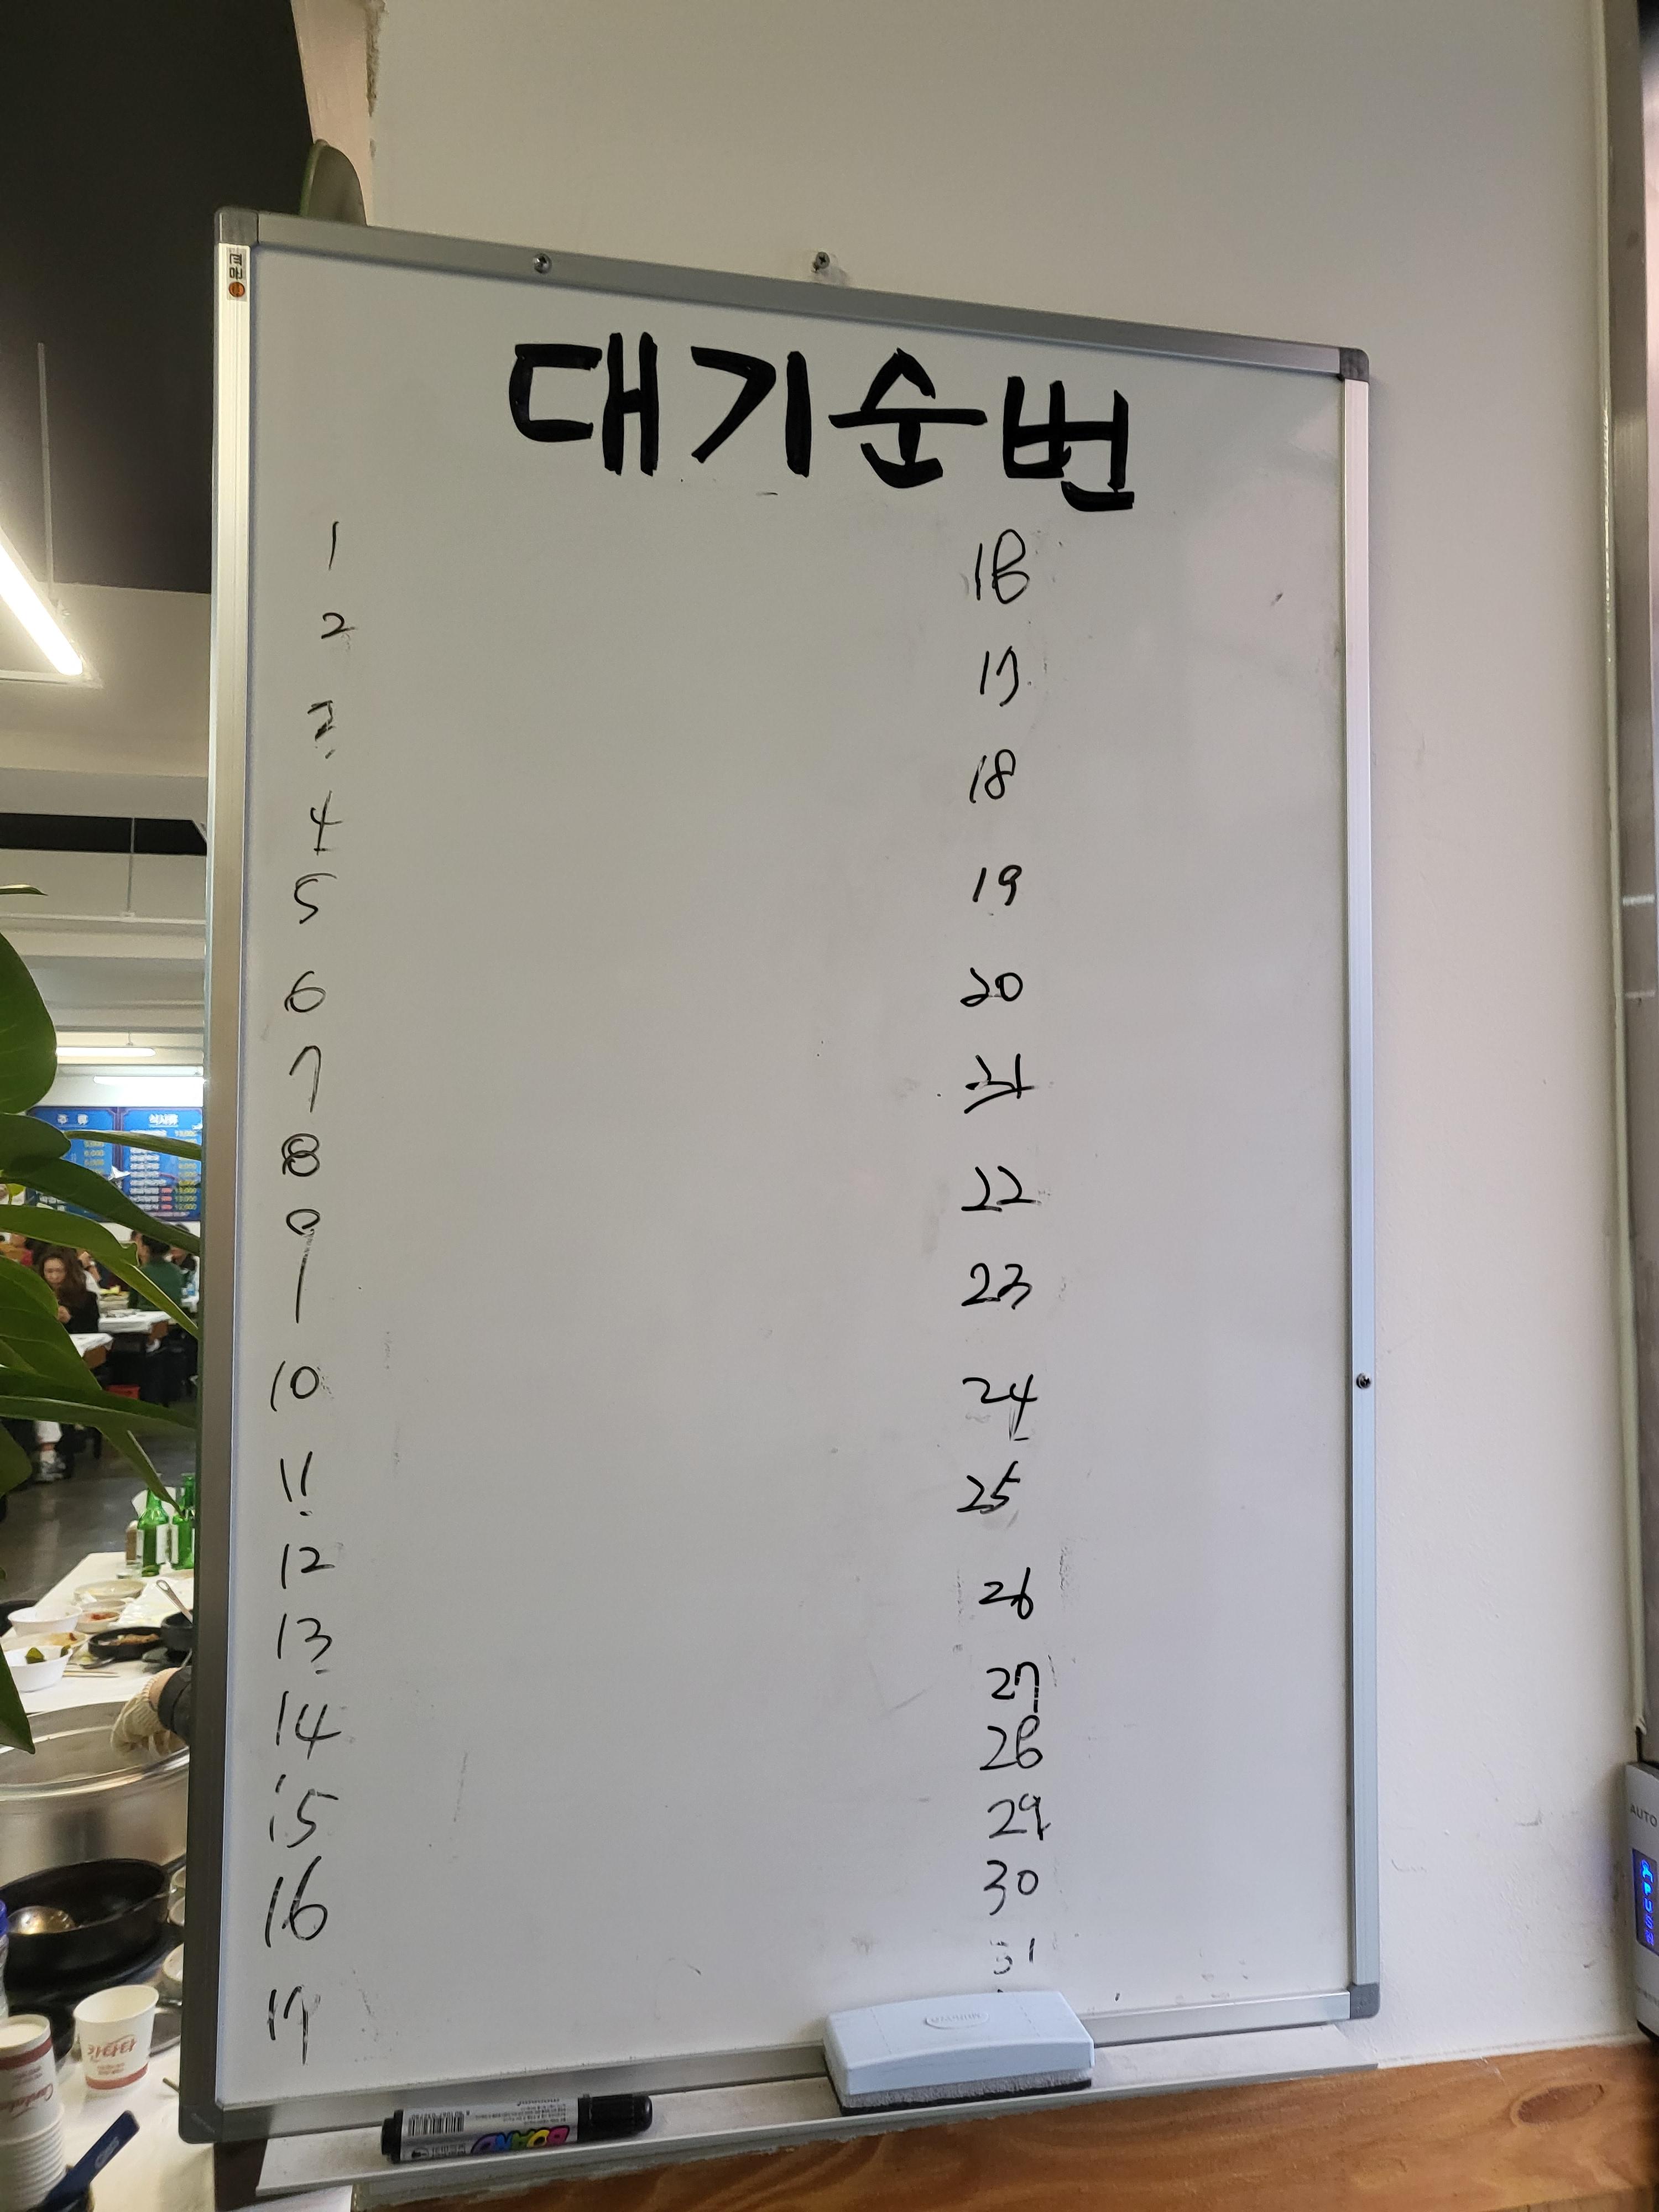 대기순번
1
2
3
4
5
6
7
8
9
10
11
12
13
14
15
16
17
16
17
18
19
20
21
22
23
24
25
26
27
28
29
30
31
BOARD
AUTO